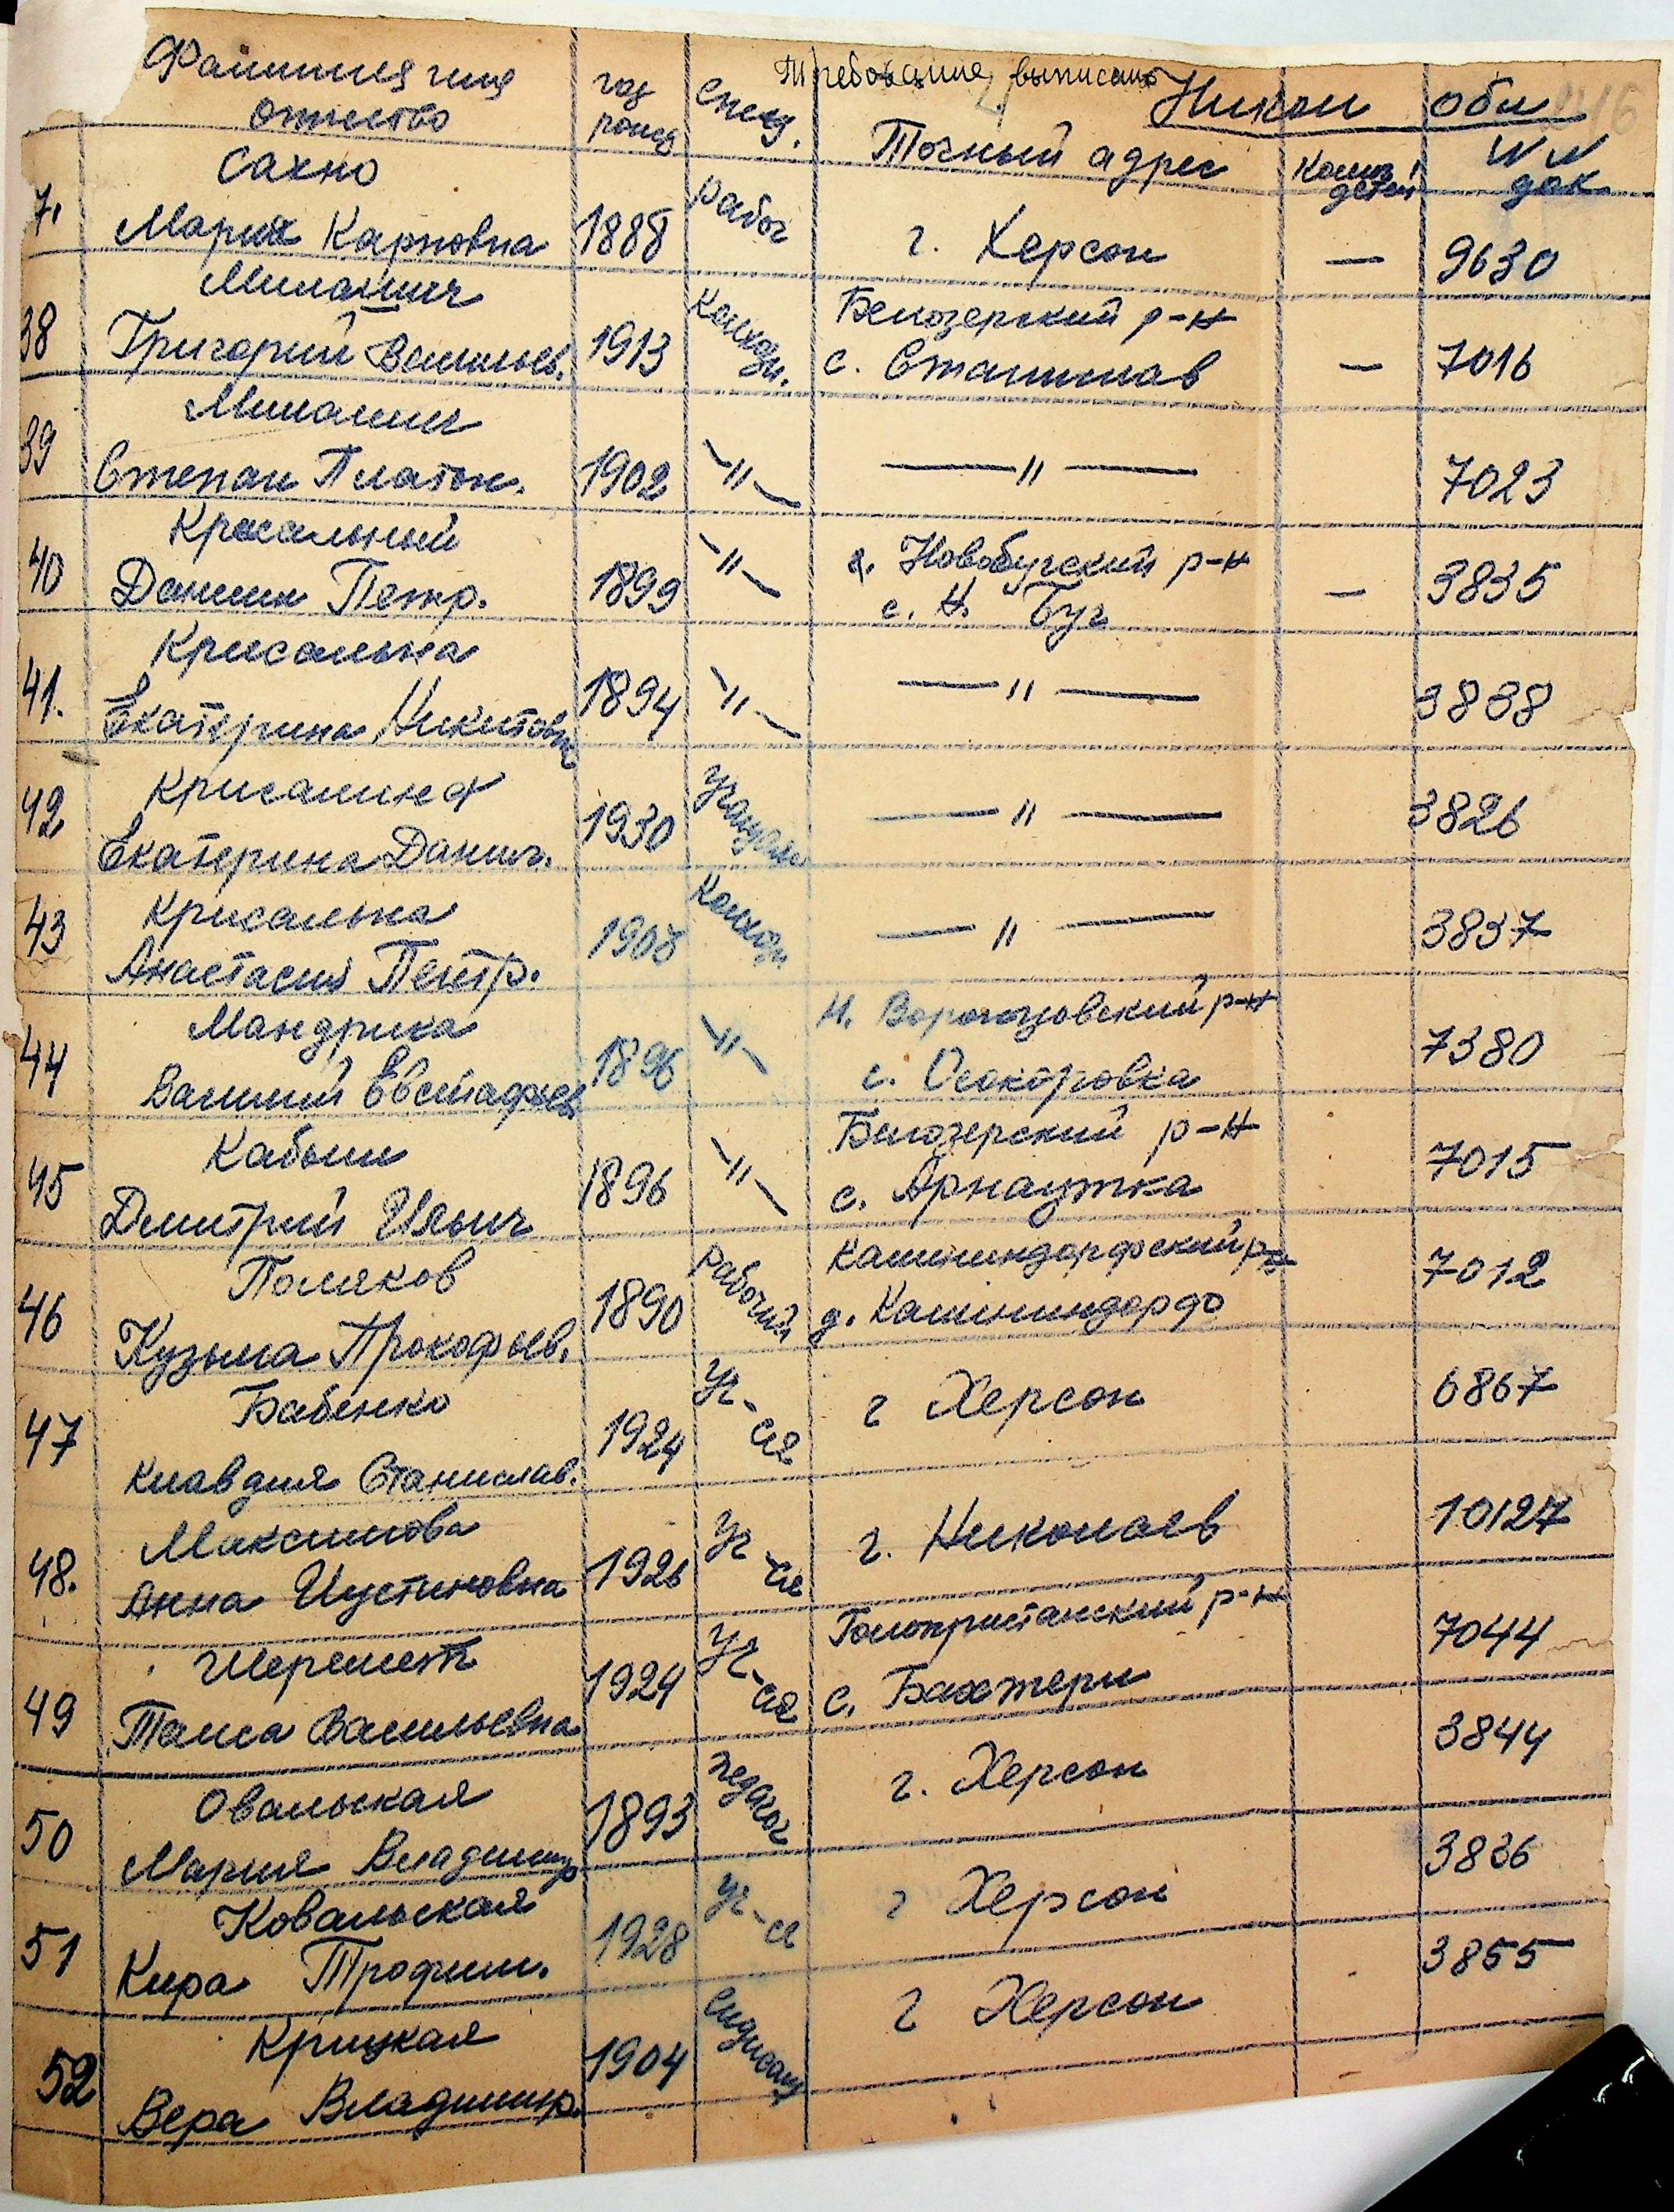 Требование выписано
Никол обл
246
Фамилия имя
отчество
год
рожд
спец.
Точный адрес
Колич
детей
NN
док
7.
Сахно
Мария Карповна
1888
рабоч
г. Херсон
—
9630
38
Милашич
Григорий Васильев.
1913
Колхозн.
Белозерский р-н
с. Станислав
—
7016
39
Степан Платон.
1902
—"—
—"—
7023
40
Крисальный
Даниил Петр.
1899
—"—
г. Новобугский р-н
с. Н. Буг
—
3835
41.
Крисальна
Екатерина Никитовна
1894
—"—
—"—
3838
42
Екатерина Данил.
1930
Учащаяся
—"—
3826
43
Крисальна
Анастасия Петр.
1908
Колхозн.
—"—
3837
44
Мандрика
Василий Евстафьев
1896
—"—
Н. Воронцовский р-н
с. Осокоровка
7380
45
Кабыш
Дмитрий Ильич
1896
—"—
Белозерский р-н
с. Арнаутка
7015
46
Поляков
Кузьма Прокофьев.
1890
Рабочий
Калининдорфский р-н
д. Калининдорф
7012
47
Бабенко
Клавдия Станислав.
1924
Уч-ся
г Херсон
6867
48.
Максимова
Анна Иустиновна
1926
Уч-ся
г. Николаев
10127
49
Шеремет
Таиса Васильевна
1924
Уч-ся
Голопристанский р-н
с. Бахтеры
7044
50
Овальская
Мария Владимир
1893
педагог
г. Херсон
3844
51
Ковальская
Кира Трофим.
1928
Уч-ся
г Херсон
3836
52
Крицкая
Вера Владимир.
1904
г Херсон
3855